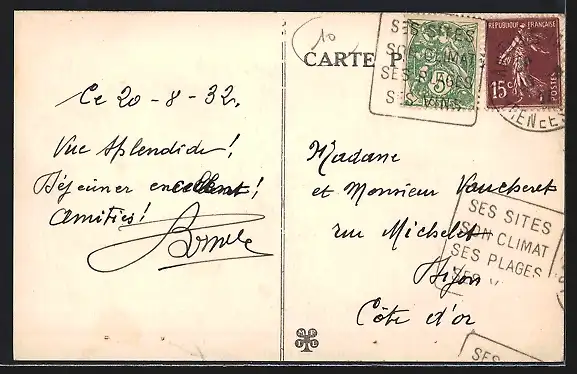 Ce 20-8-32,
Vue Splendide!,
Déjeuner excellent!
Amitiés!
10
CARTE P
SES SITES
SON CLIMAT
SES PLAGES
SES VINS
5
REPUBLIQUE FRANÇAISE
15c
POSTES
Madame
et Monsieur Vaucheret
rue Michelet
Dijon
Côte d'or
SES SITES
SON CLIMAT
SES PLAGES
SES V
SES